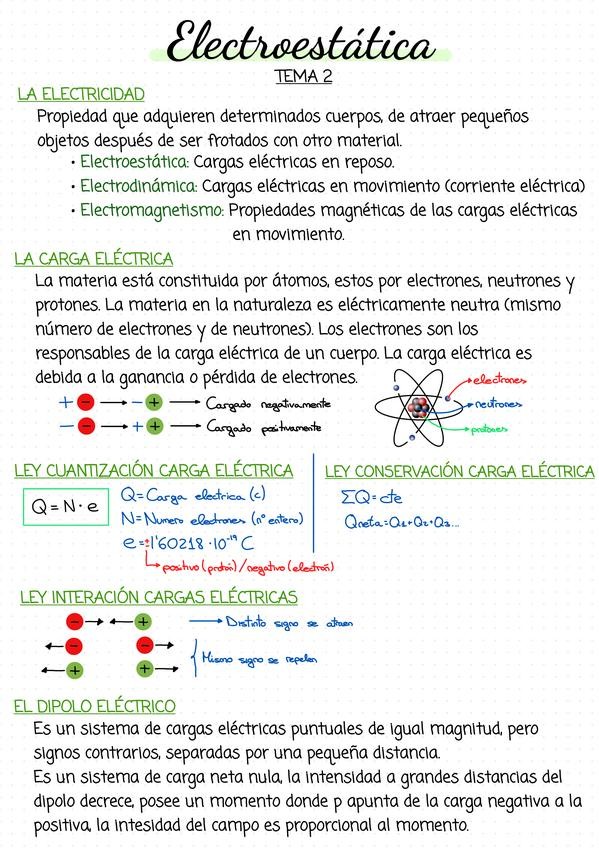 Electroestática
TEMA 2
LA ELECTRICIDAD
Propiedad que adquieren determinados cuerpos, de atraer pequeños
objetos después de ser frotados con otro material.
• Electroestática: Cargas eléctricas en reposo.
• Electrodinámica: Cargas eléctricas en movimiento (corriente eléctrica)
• Electromagnetismo: Propiedades magnéticas de las cargas eléctricas
en movimiento.
LA CARGA ELÉCTRICA
La materia está constituida por átomos, estos por electrones, neutrones y
protones. La materia en la naturaleza es eléctricamente neutra (mismo
número de electrones y de neutrones). Los electrones son los
responsables de la carga eléctrica de un cuerpo. La carga eléctrica es
debida a la ganancia o pérdida de electrones.
+ - → - + → Cargado negativamente
- - → + + → Cargado positivamente
electrones
neutrones
protones
LEY CUANTIZACIÓN CARGA ELÉCTRICA
Q = N · e
Q = Carga electrica (c)
N = Numero electrones (nº entero)
e = ± 1'60218 · 10⁻¹⁹ C
positivo (protón) / negativo (electrón)
LEY CONSERVACIÓN CARGA ELÉCTRICA
ΣQ = cte
Qneta = Q₁ + Q₂ + Q₃...
LEY INTERACIÓN CARGAS ELÉCTRICAS
- → ← + → Distinto signo se atraen
← - - →
← + + →
Mismo signo se repelen
EL DIPOLO ELÉCTRICO
Es un sistema de cargas eléctricas puntuales de igual magnitud, pero
signos contrarios, separadas por una pequeña distancia.
Es un sistema de carga neta nula, la intensidad a grandes distancias del
dipolo decrece, posee un momento donde p apunta de la carga negativa a la
positiva, la intesidad del campo es proporcional al momento.